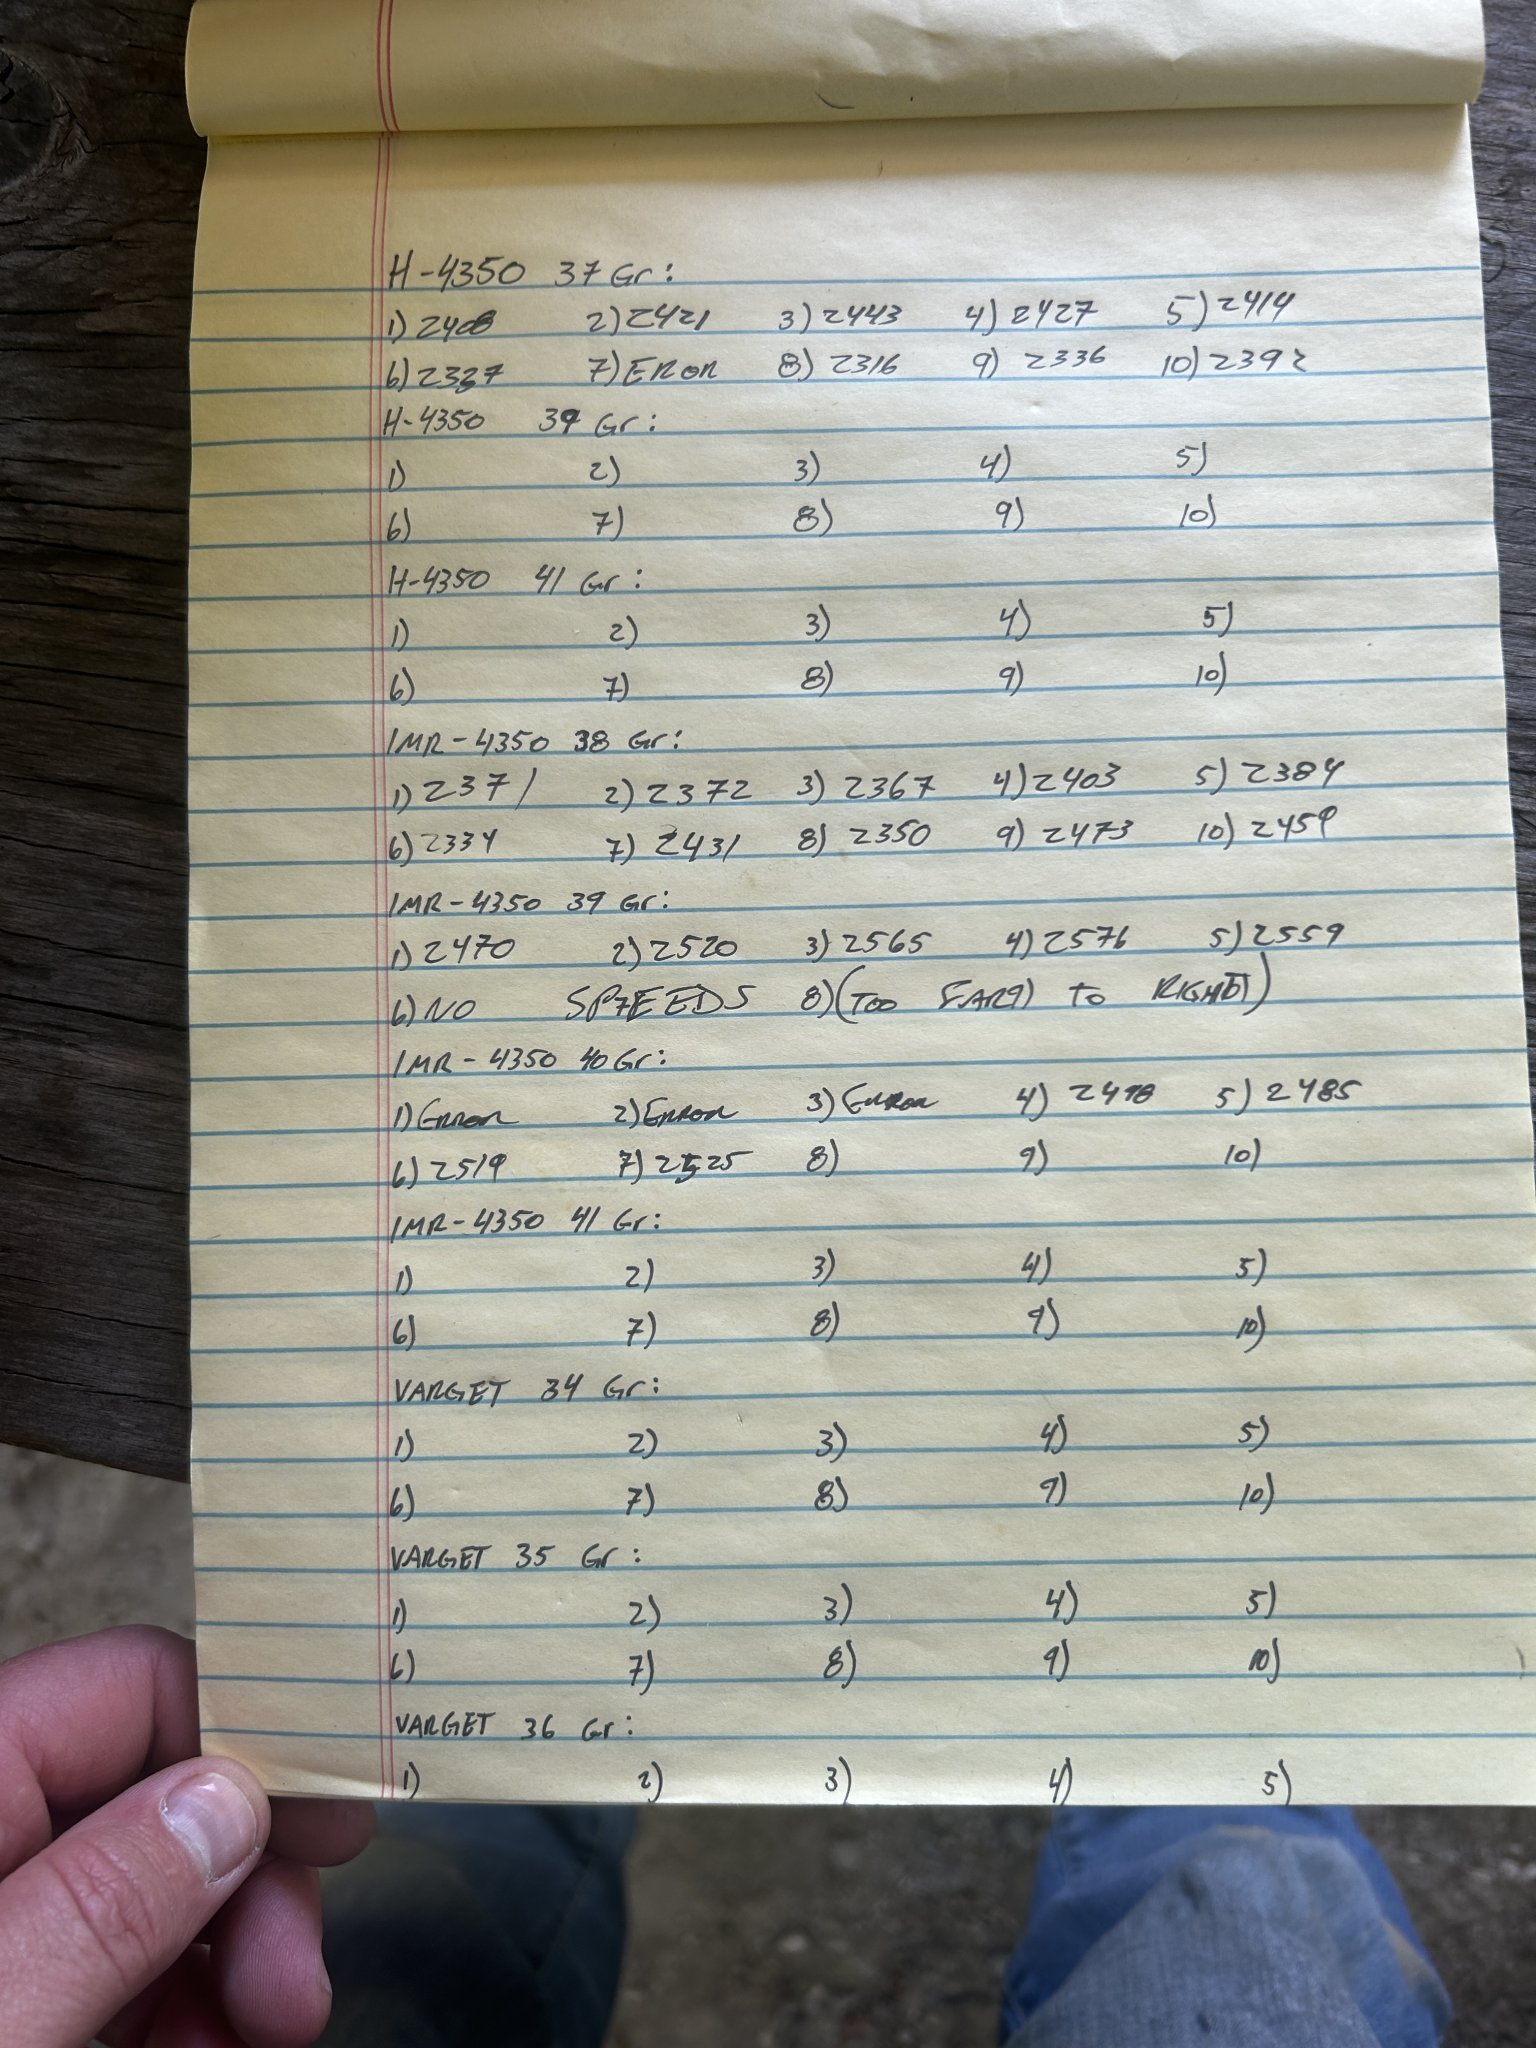 H-4350 37 Gr:
1) 2408 2) 2421 3) 2443 4) 2427 5) 2414
6) 2337 7) EROR 8) 2316 9) 2336 10) 2392
H-4350 39 Gr:
1) 2) 3) 4) 5)
6) 7) 8) 9) 10)
H-4350 41 Gr:
1) 2) 3) 4) 5)
6) 7) 8) 9) 10)
IMR-4350 38 Gr:
1) 2371 2) 2372 3) 2367 4) 2403 5) 2384
6) 2334 7) 2431 8) 2350 9) 2473 10) 2459
IMR-4350 39 Gr:
1) 2470 2) 2520 3) 2565 4) 2576 5) 2559
6) NO SPEEDS 8) (TOO FAR TO RIGHT)
IMR-4350 40 Gr:
1) Error 2) Error 3) Error 4) 5) 2485
6) 2519 7) 2525 8) 9) 10)
IMR-4350 41 Gr:
1) 2) 3) 4) 5)
6) 7) 8) 9) 10)
VARGET 34 Gr:
1) 2) 3) 4) 5)
6) 7) 8) 9) 10)
VARGET 35 Gr:
1) 2) 3) 4) 5)
6) 7) 8) 9) 10)
VARGET 36 Gr:
1) 2) 3) 4) 5)